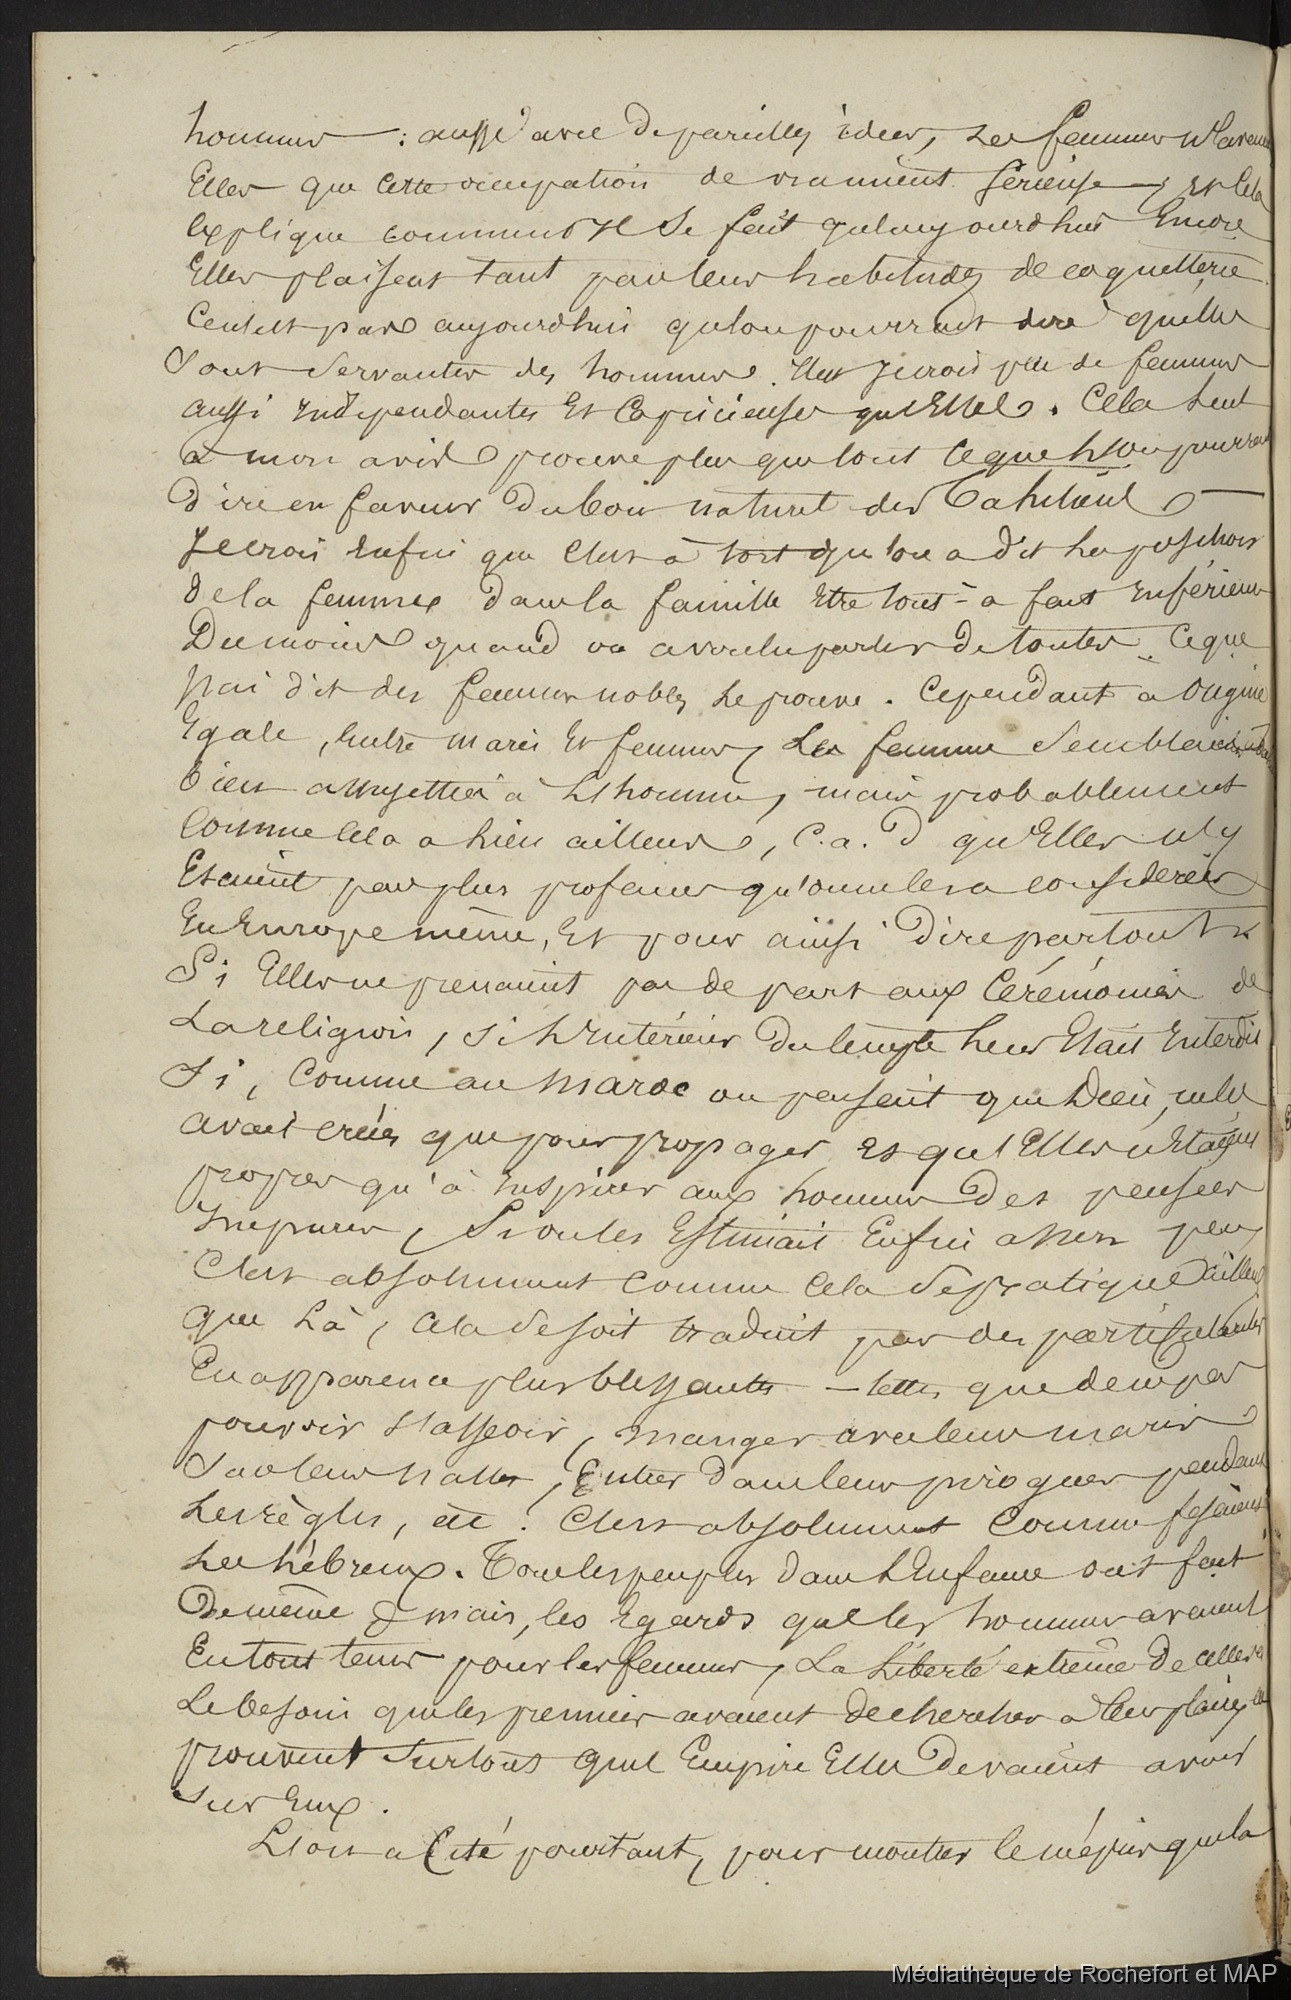 hommes : aussi avec de pareilles idées, les femmes n'avaient
Elles que cette occupation de vraiment sérieuse, et cela
explique comment Il se fait qu'aujourd'hui Encore
Elles plaisent tant par leurs habitudes de coquetterie
Ce n'est pas aujourd'hui qu'on pourrait dire qu'elles
sont servantes des hommes. Il est je crois peu de femmes
aussi indépendantes Et Capricieuses qu'Elles. Cela seul
à mon avis prouve plus que tout ce que l'on pourrait
dire en faveur du bon naturel des Tahitiens —
Je crois enfin que c'est à tort qu'on a dit la position
de la femme dans la famille Etre tout-à fait inférieure
Du moins quand on a voulu parler de toutes. Ce que
j'ai dit des femmes nobles le prouve. Cependant à origine
Egale, Entre maris Et femmes, la femme semblait
bien assujettie à l'homme, mais probablement
comme cela a lieu ailleurs, C.a.d qu'Elles n'y
Etaient pas plus profanes qu'on ne les a considérées
En Europe même, Et pour ainsi dire partout
Si Elles ne prenaient pas de part aux Cérémonies de
La religion, si l'intérieur du temple leur Etait interdit
Si, comme au Maroc on pensait que Dieu, ne les
avait créées que pour propager et qu'Elles n'Etaient
propres qu'à inspirer aux hommes des pensées
Impures, Si on les Estimait Enfin assez peu
C'est absolument comme cela se pratique d'ailleurs
que là, cela se soit traduit par des particularités
En apparence plus blessantes — telles que de ne pas
pouvoir s'asseoir, manger avec leurs maris
sur leurs nattes, Entrer dans leurs pirogues pendant
les règles, etc. C'est absolument comme faisaient
les hébreux. Tous les peuples dans l'Enfance ont fait
De même & mais, les Egards que les hommes avaient
En tout tems pour les femmes, La Liberté extrême de celles-ci
Le besoin que les premiers avaient de chercher à leur plaire
prouvent surtout quel Empire Elles devaient avoir
sur Eux.
L'on a Cité pourtant, pour montrer le mépris que la
Médiathèque de Rochefort et MAP